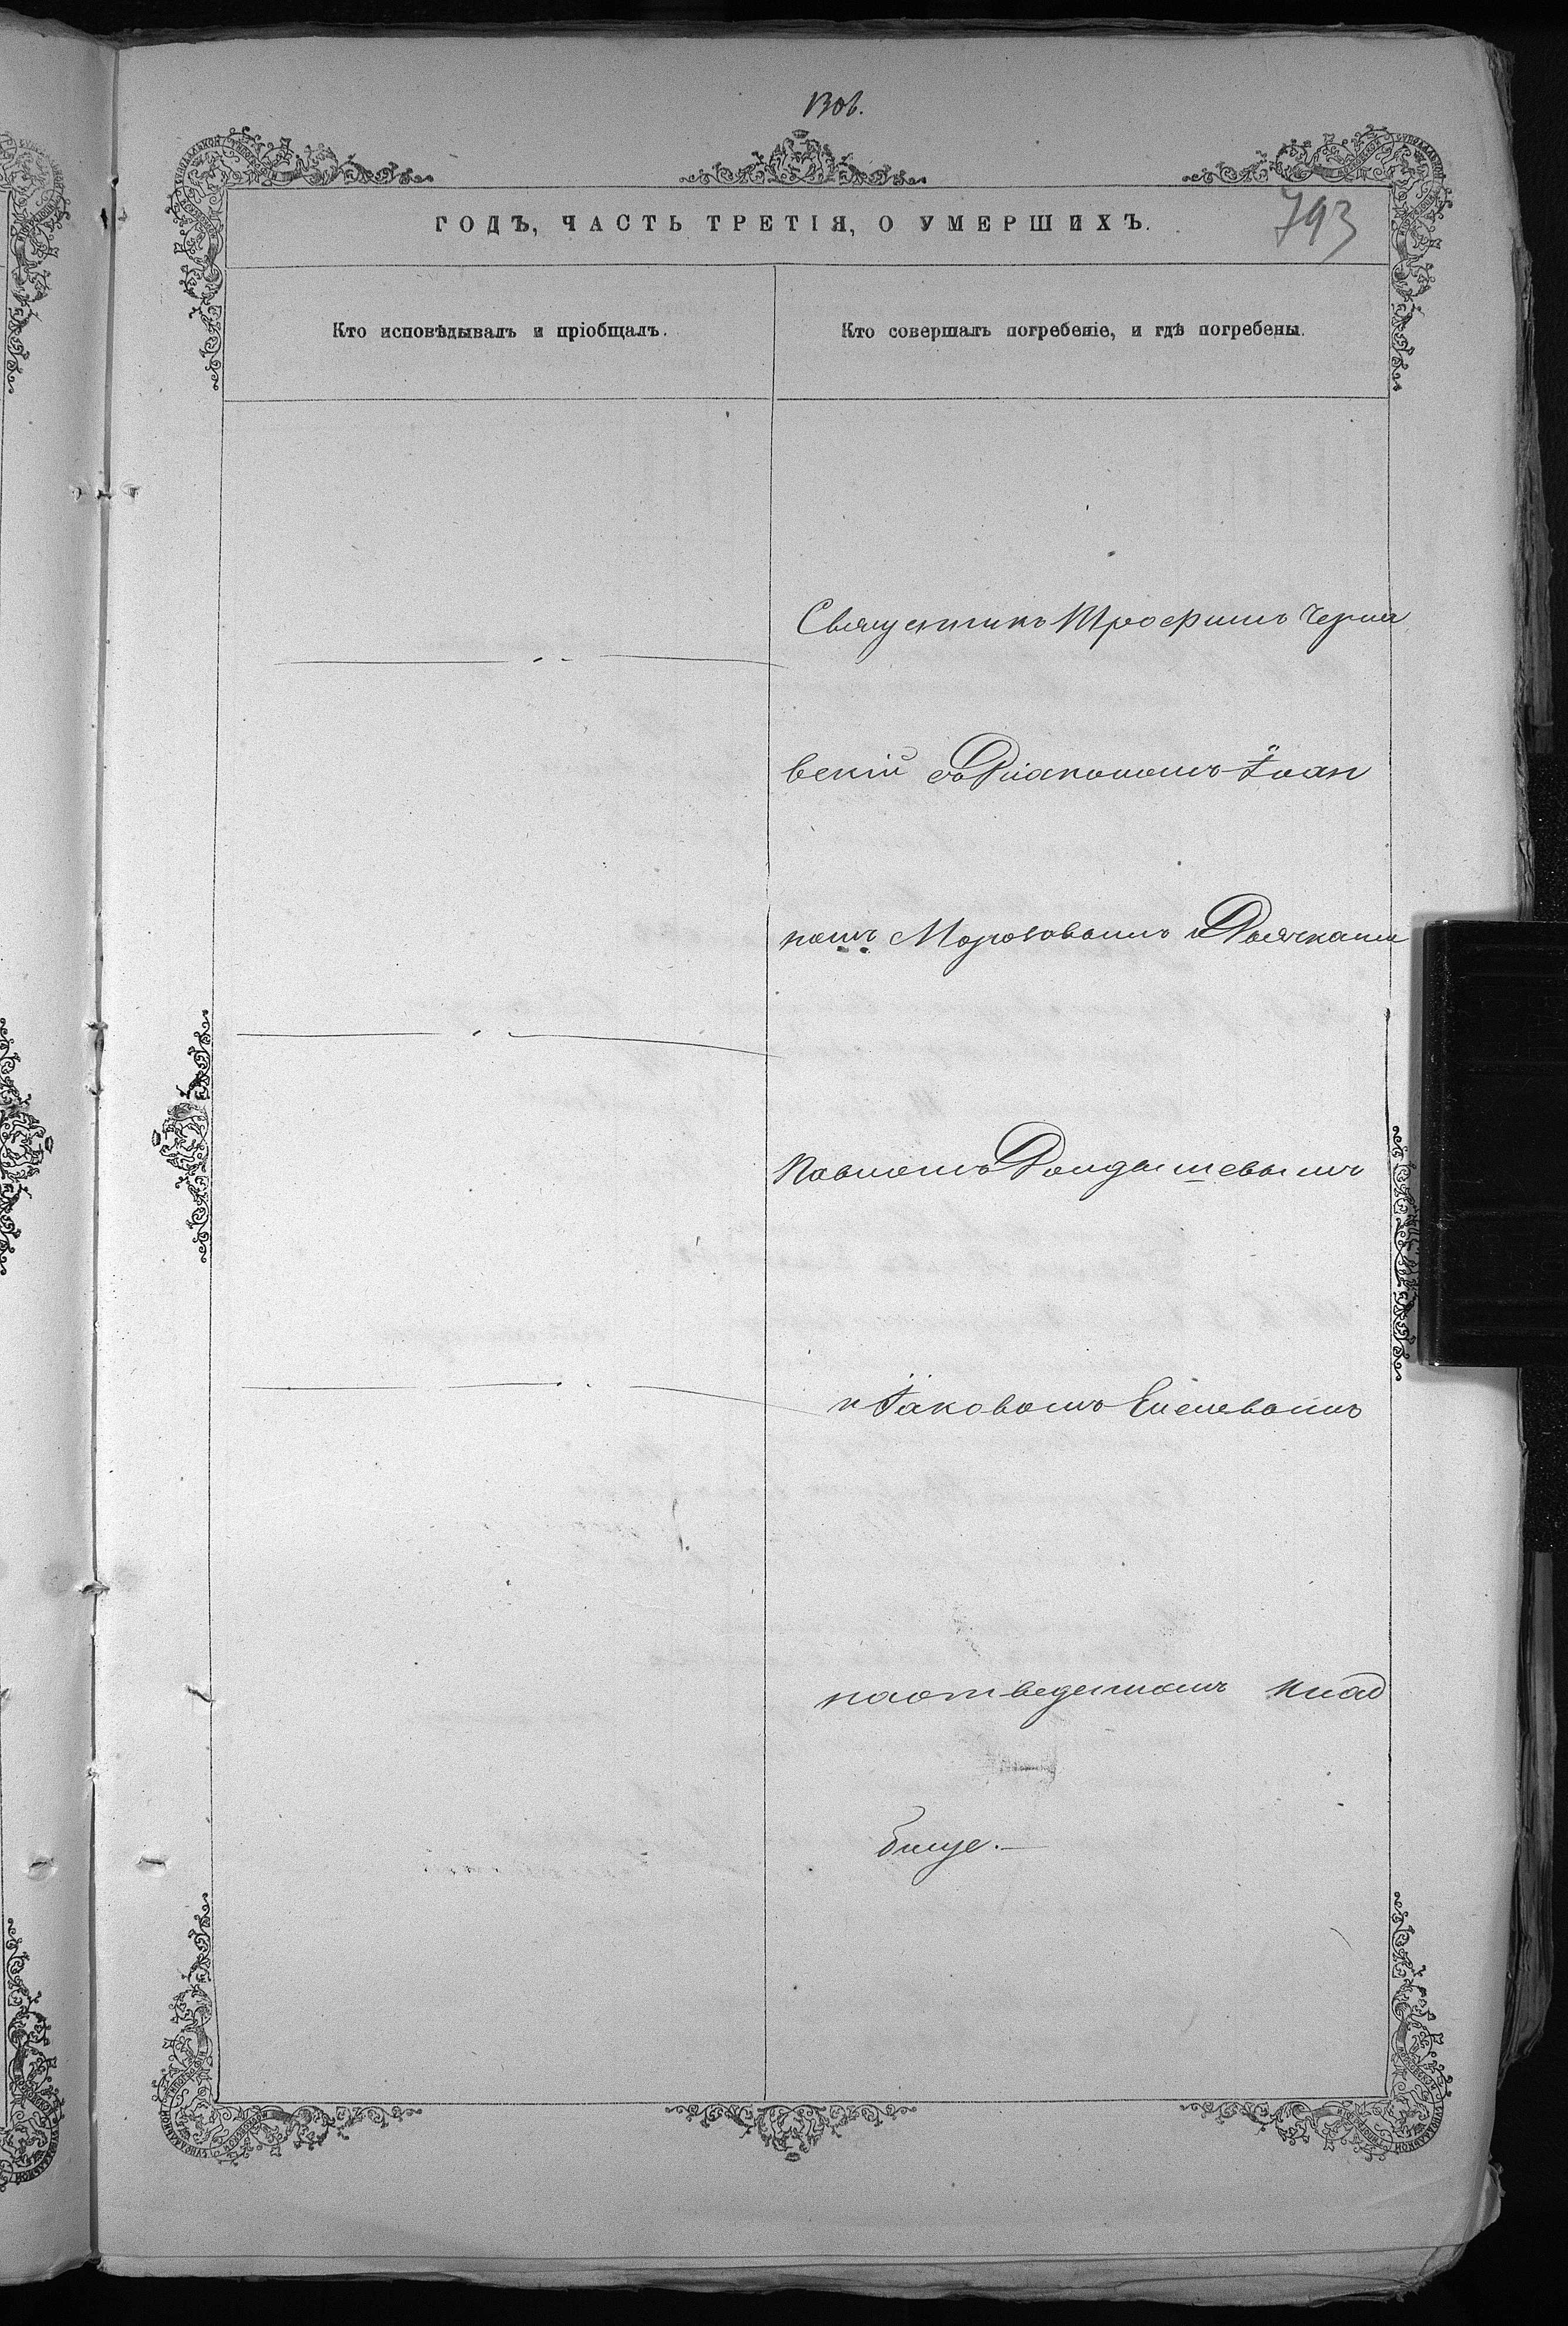 793
ГОДЪ, ЧАСТЬ ТРЕТІЯ, О УМЕРШИХЪ.
Кто исповѣдывалъ и пріобщалъ.
Кто совершалъ погребеніе, и гдѣ погребены.
Священникъ Трофимъ Черня
вскій съ Діакономъ Іоан
номъ Морозовымъ и Дьячками
Павломъ
и Іаковомъ
на отведенномъ клад
бищѣ.—